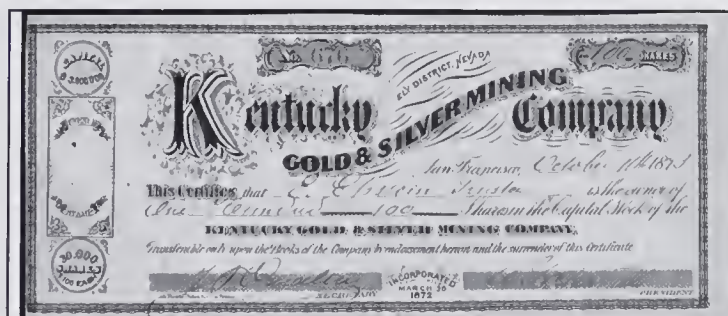 CAPITAL
$3,000,000
30,000
SHARES
$100 EACH
No.
100 SHARES
ELY DISTRICT, NEVADA
Kentucky
GOLD & SILVER MINING
Company
San Francisco, October 1873
This Certifies that Trustee is the owner of
One Hundred 100 Shares in the Capital Stock of the
KENTUCKY GOLD & SILVER MINING COMPANY,
Transferable only upon the Books of the Company by endorsement hereon and the surrender of this Certificate
SECRETARY
INCORPORATED
MARCH 30
1872
PRESIDENT